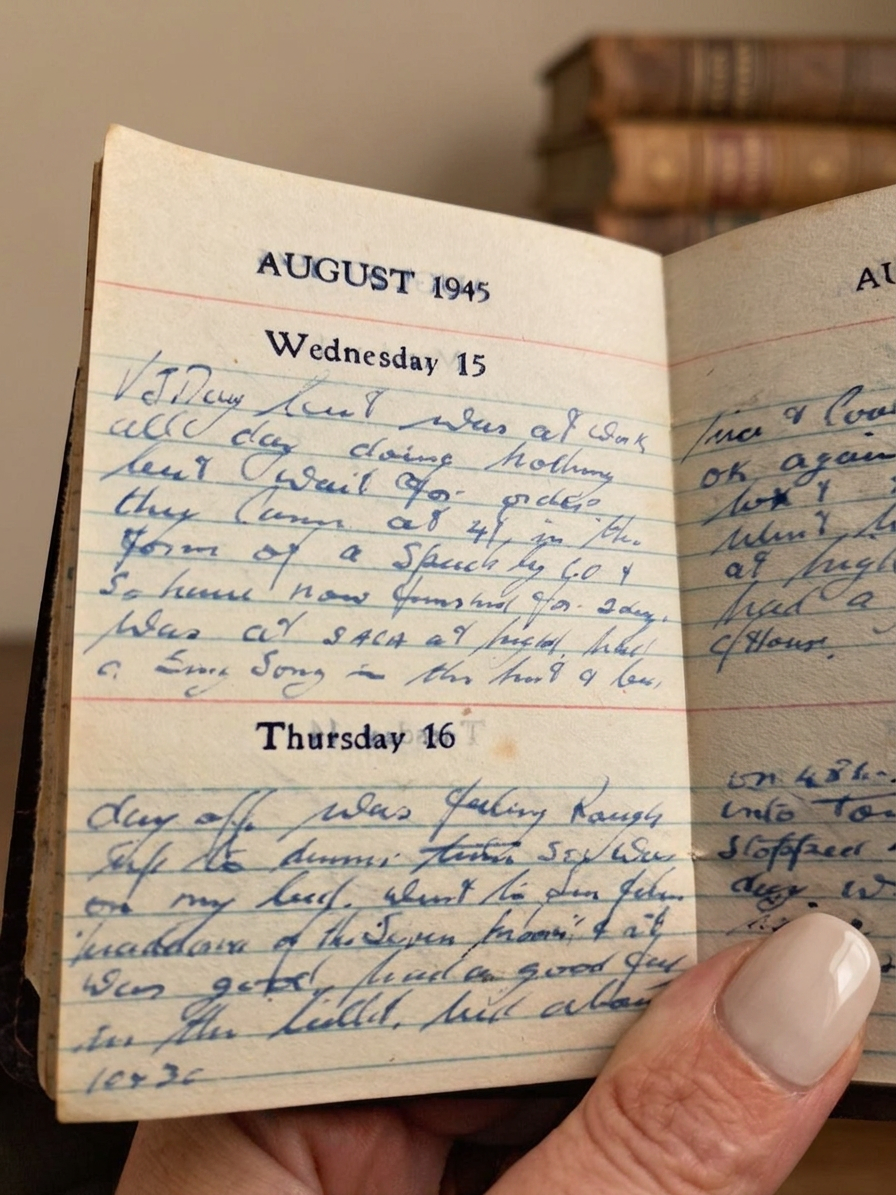 AUGUST 1945
Wednesday 15
VJ Day but was at work
all day doing nothing
but wait for orders
they came at 4, in the
form of a Speech by C.O &
So have now finished for 2 days.
Was at at night, had
a Sing Song in the hut & bed,
Thursday 16
day off, was feeling Rough
up to dinner
on my bed. Went to see film
madonna of the Seven moons & it
was good, had a good
in the billet, bed about
10 30
AU
OK again
at nigh
had a
C/House.
on 48
into To
Stopped
day